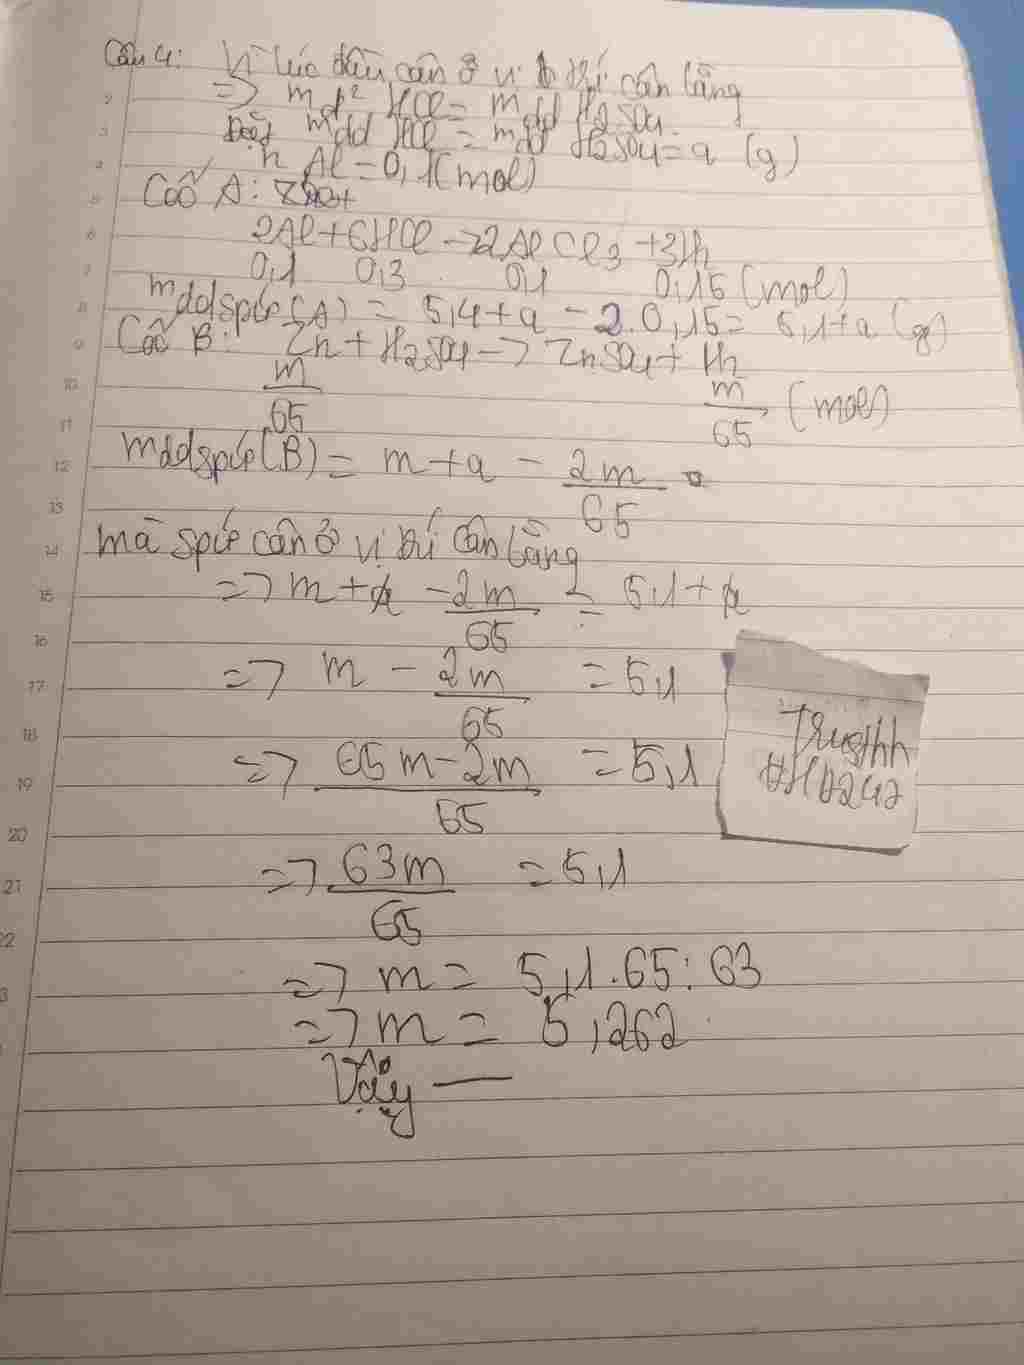 Câu 4: Vì lúc đầu cân ở vị trí cân bằng
=> m d² HCl = m dd H2SO4
Đặt m dd HCl = m dd H2SO4 = a (g)
n Al = 0,1 (mol)
Cốc A:
2Al + 6HCl -> 2AlCl3 + 3H2
0,1 0,3 0,1 0,15 (mol)
m dd spứ (A) = 5,4 + a - 2.0,15 = 5,1 + a (g)
Cốc B: Zn + H2SO4 -> ZnSO4 + H2
m/65 m/65 (mol)
m dd spứ (B) = m + a - 2m/65
mà spứ cân ở vị trí cân bằng
=> m + a - 2m/65 = 5,1 + a
=> m - 2m/65 = 5,1
=> 65m - 2m/65 = 5,1
=> 63m/65 = 5,1
=> m = 5,1.65:63
=> m = 5,262
Vậy —